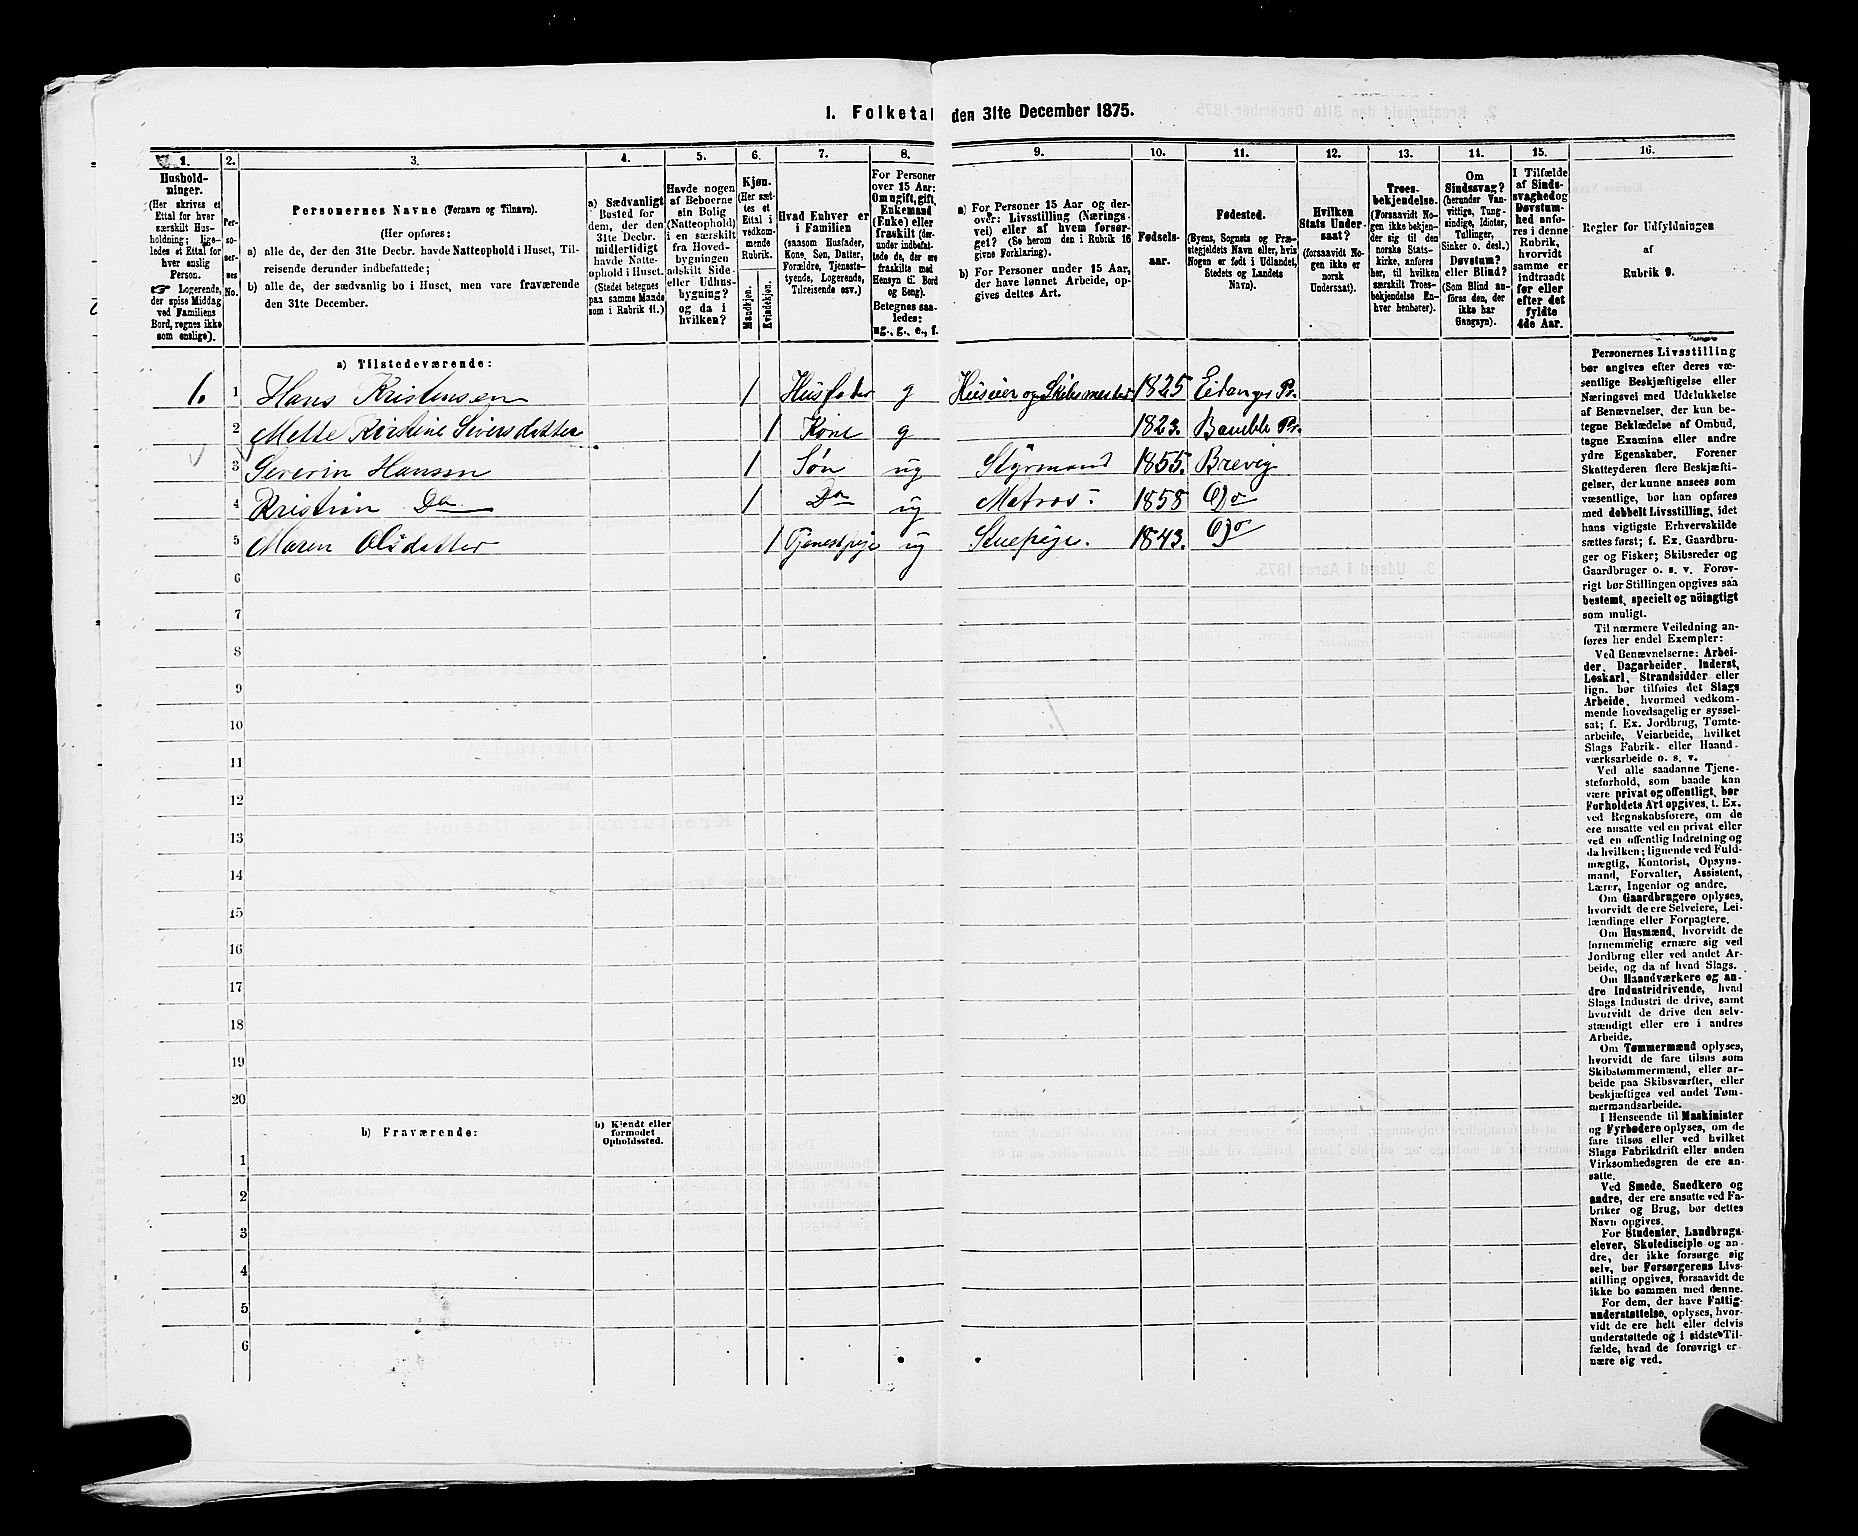 1. Folketal den 31te December 1875.
1. 2. 3. 4. 5. 6. 7. 8. 9. 10. 11. 12. 13. 14. 15. 16.
Hushold-
ninger.
(Her skrives et
Ettal for hver
særskilt Hus-
holdning; lige-
ledes et Ettal for
hver enslig
Person.
☞ Logerende,
der spise Middag
ved Familiens
Bord, regnes ikke
som enslige).
Per-
so-
ner-
nes
No.
Personernes Navne (Fornavn og Tilnavn).
(Her opføres:
a) alle de, der den 31te Decbr. havde Natteophold i Huset, Til-
reisende derunder indbefattede;
b) alle de, der sædvanlig bo i Huset, men vare fraværende
den 31te December.
a) Sædvanligt
Busted for
dem, der den
31te Decbr.
midlertidigt
havde Natte-
ophold i Huset.
(Stedet betegnes
paa samme Maade
som i Rubrik 11.)
Havde nogen
af Beboerne
sin Bolig
(Natteophold)
i en særskilt
fra Hoved-
bygningen
adskilt Side-
eller Udhus-
bygning?
og da i
hvilken?
Kjøn.
(Her sæt-
tes et
Ettal i
vedkom-
mende
Rubrik.
Mandkjøn.
Kvindekjøn.
Hvad Enhver er
i Familien
(saasom Husfader,
Kone, Søn, Datter,
Forældre, Tjeneste-
tyende, Logerende,
Tilreisende osv.)
For Personer
over 15 Aar:
Om ugift, gift,
Enkemand
(Enke) eller
fraskilt (der-
under indbefat-
tede de, der ere
fraskilte med
Hensyn til Bord
og Seng).
Betegnes saa-
ledes:
ug., g., e., f.
a) For Personer 15 Aar og der-
over: Livsstilling (Nærings-
vei) eller af hvem forsør-
get? (Se herom den i Rubrik 16
givne Forklaring).
b) For Personer under 15 Aar,
der have lønnet Arbeide, op-
gives dettes Art.
Fødsels-
aar.
Fødested.
(Byens, Sognets og Præ-
stegjeldets Navn eller, hvis
Nogen er født i Udlandet,
Stedets og Landets
Navn).
Hvilken
Stats Under-
saat?
(forsaavidt No-
gen ikke er
norsk
Undersaat).
Troes-
bekjendelse.
(Forsaavidt No-
gen ikke bekjen-
der sig til den
norske Stats-
kirke, anføres
her, til hvilken
særskilt Troes-
bekjendelse En-
hver henhører).
Om
Sindssvag?
(herunder Van-
vittige, Tung-
sindige, Idioter,
Tullinger,
Sinker o. desl.)
Døvstum?
eller Blind?
(Som Blind an-
føres den, der
ikke har
Gangsyn).
I Tilfælde
af Sinds-
svaghed og
Døvstum-
hed anfø-
res i denne
Rubrik,
hvorvidt
samme er
indtraadt
før eller
efter det
fyldte
4de Aar.
Regler for Udfyldningen
af
Rubrik 9.
a) Tilstedeværende:
1. 1 Hans Kristensen 1 Husfader g Huseier og Skibsmester 1825 Eidanger Pr.
2 Mette Kirstine Siversdatter 1 Kone g 1823. Bamble Pr.
3 Severin Hansen 1 Søn ug Styrmand 1855. Brevig
4 Kristian Do 1 Do ug Matros 1858 Do
5 Maren Olsdatter 1 Tjenestpige ug Stuepige. 1843. Do
6
7
8
9
10
11
12
13
14
15
16
17
18
19
20
b) Fraværende:
b) Kjendt eller
formodet
Opholdssted.
1
2
3
4
5
6
Personernes Livsstilling
bør angives efter deres væ-
sentlige Beskjæftigelse eller
Næringsvei med Udelukkelse
af Benævnelser, der kun be-
tegne Beklædelse af Ombud,
tagne Examina eller andre
ydre Egenskaber. Forener
Skatteyderen flere Beskjæfti-
gelser, der kunne ansees som
væsentlige, bør han opføres
med dobbelt Livsstilling, idet
hans vigtigste Erhvervskilde
sættes først; f. Ex. Gaardbru-
ger og Fisker; Skibsreder og
Gaardbruger o. s. v. Forøv-
rigt bør Stillingen opgives saa
bestemt, specielt og nöiagtigt
som muligt.
Til nærmere Veiledning an-
føres her endel Exempler:
Ved Benævnelserne: Arbei-
der, Dagarbeider, Inderst,
Løskarl, Strandsidder eller
lign. bør tilføies det Slags
Arbeide, hvormed vedkom-
mende hovedsagelig er syssel-
sat; f. Ex. Jordbrug, Tomte-
arbeide, Veiarbeide, hvilket
Slags Fabrik- eller Haand-
værksarbeide o. s. v.
Ved alle saadanne Tjene-
steforhold, som baade kan
være privat og offentligt, bør
Forholdets Art opgives, t. Ex.
ved Regnskabsførere, om de
ere ansatte ved en privat eller
ved en offentlig Indretning og
da hvilken; lignende ved Fuld-
mægtig, Kontorist, Opsyns-
mand, Forvalter, Assistent,
Lærer, Ingeniør og andre.
Om Gaardbrugere oplyses,
hvorvidt de ere Selveiere, Lei-
lændinge eller Forpagtere.
Om Husmænd, hvorvidt de
fornemmelig ernære sig ved
Jordbrug eller ved andet Ar-
beide, og da af hvad Slags.
Om Haandværkere og an-
dre Industridrivende, hvad
Slags Industri de drive, samt
hvorvidt de drive den selv-
stændigt eller ere i andres
Arbeide.
Om Tømmermænd oplyses,
hvorvidt de fare tilsøs som
Skibstømmermænd, eller ar-
beide paa Skibsværfter, eller
beskjæftiges ved andet Tøm-
mermandsarbeide.
I Henseende til Maskinister
og Fyrbødere oplyses, om de
fare tilsøs eller ved hvilket
Slags Fabrikdrift eller anden
Virksomhedsgren de ere an-
satte.
Ved Smede, Snedkere og
andre, der ere ansatte ved Fa-
briker og Brug, bør dettes
Navn opgives.
For Studenter, Landbrugs-
elever, Skoledisciple og an-
dre, der ikke forsørge sig
selv, bør Forsørgerens Livs-
stilling opgives, forsaavidt de
ikke bo sammen med denne.
For dem, der have Fattig-
understøttelse, oplyses, hvor-
vidt de ere helt eller delvis
understøttede og i sidste Til-
fælde, hvad de forøvrigt er-
nære sig ved.